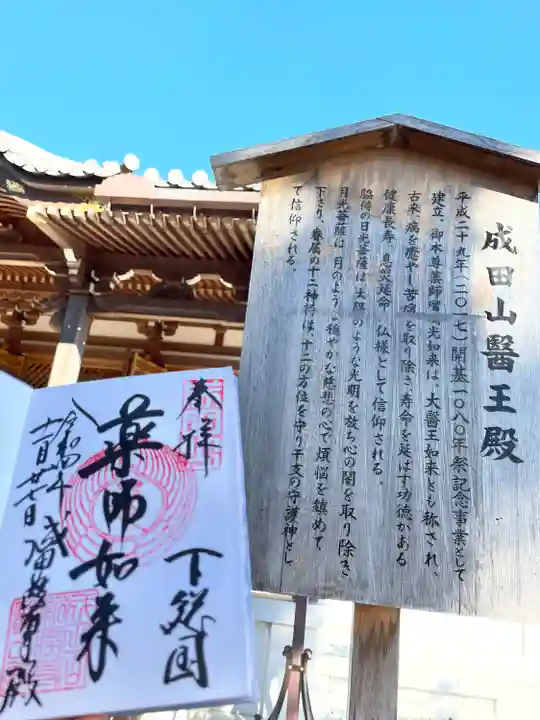 成田山醫王殿
平成二十九年（二〇一七）開基一〇八〇年祭記念事業として
建立。御本尊薬師瑠璃光如来は、大醫王如来とも称され、
古来、病を癒やし苦痛を取り除き、寿命を延ばす功徳がある
健康長寿・息災延命の仏様として信仰される。
脇侍の日光菩薩は太陽のような光明を放ち心の闇を取り除き
月光菩薩は月のような穏やかな慈悲の心で煩悩を鎮めて
下さり、眷属の十二神将は、十二の方位を守り干支の守護神とし
て信仰される。
奉拝
下総国
薬師如来
令和四年
十一月廿七日
殿